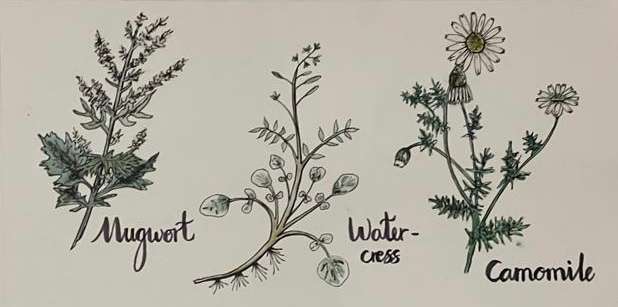 Mugwort
Water-
cress
Camomile